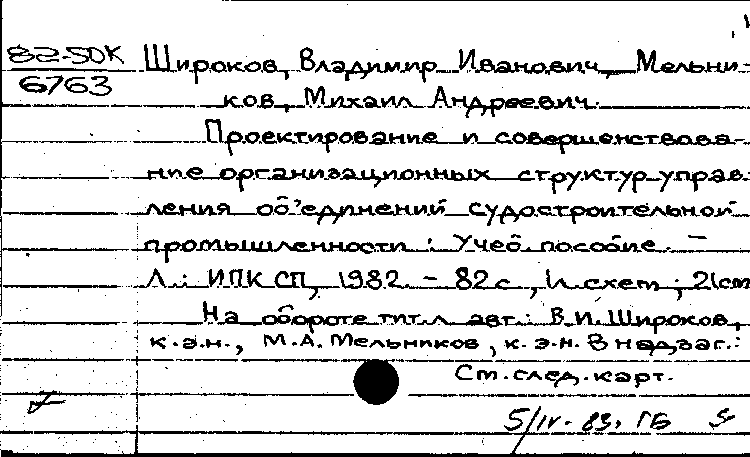 82-5ОК Широков, Владимир Иванович, Мельни-
6763 ков, Михаил Андреевич.
Проектирование и совершенствова-
ние организационных структур управ-
ления об'единений судостроительной
промышленности : Учеб. пособие. –
Л.: ИПК СП, 1982. – 82 с., ил. схем ; 21 cm
На обороте тит. л. авт.: В.И. Широков,
к.э.н., М.А. Мельников, к.э.н. В надзаг.:
См. след. карт.
5/IV-83. ГБ